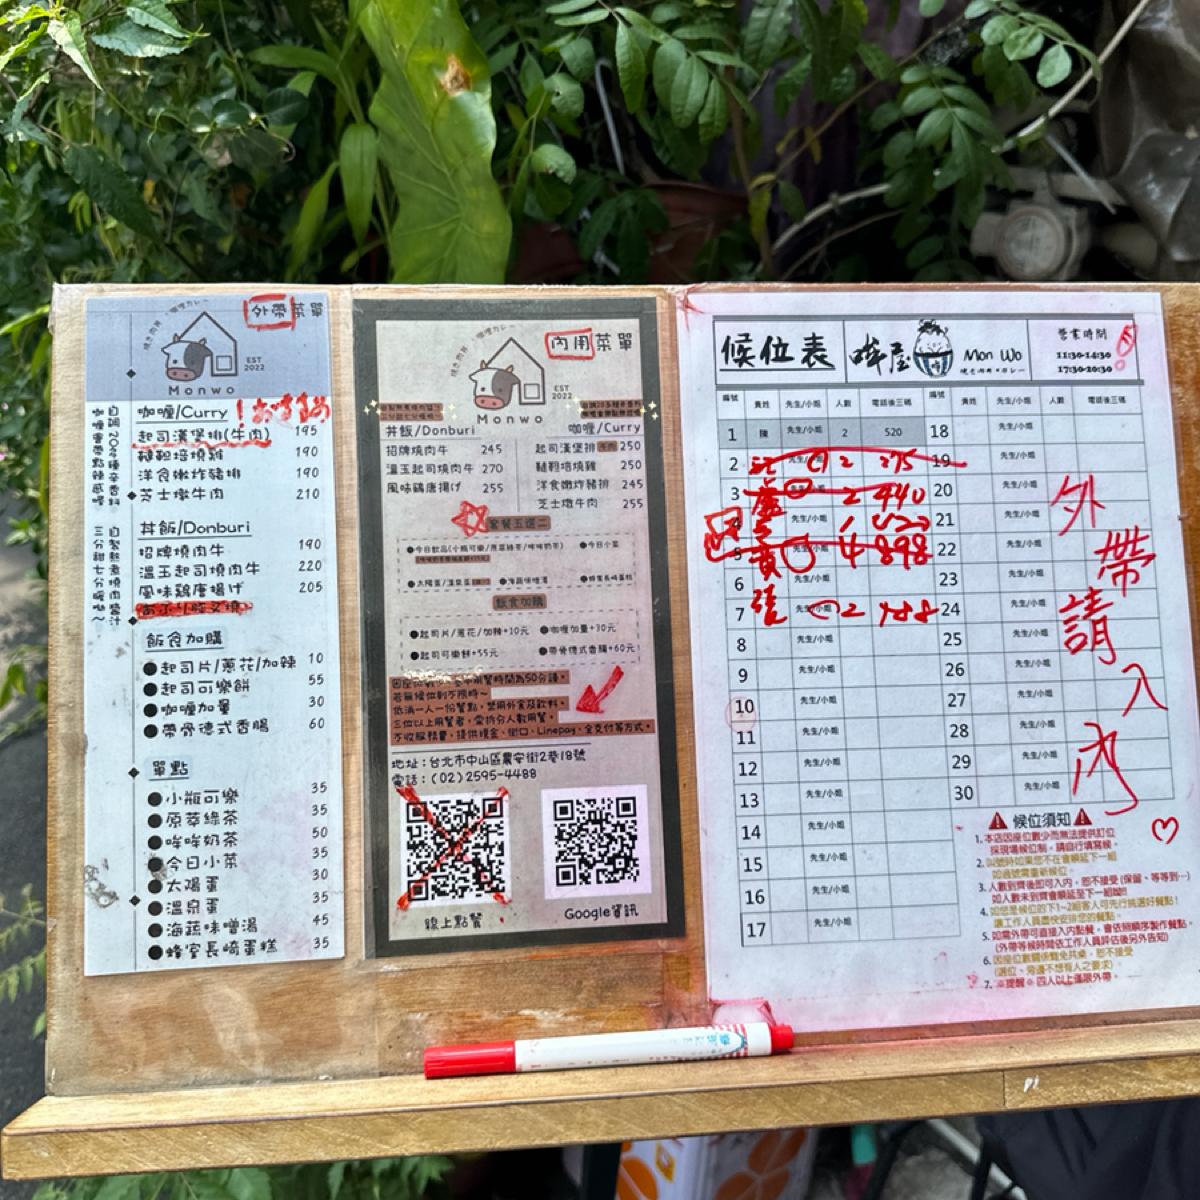 外帶菜單
燒き肉丼・咖哩カレー
EST
2022
Monwo
自調20多種辛香料
咖喱帶點辣感
自製熬煮燒肉醬汁
三分甜七分
咖喱/Curry
！おすすめ
起司漢堡排(牛肉) 195
韃靼培燒雞 190
洋食嫩炸豬排 190
芝士燉牛肉 210
丼飯/Donburi
招牌燒肉牛 190
溫玉起司燒肉牛 220
風味鶏唐揚げ 205
飯食加購
起司片/蔥花/加辣 10
起司可樂餅 55
咖喱加量 30
帶骨德式香腸 60
單點
小瓶可樂 35
原萃綠茶 35
哞哞奶茶 50
今日小菜 35
太陽蛋 30
溫泉蛋 35
海蔬味噌湯 45
蜂室長崎蛋糕 35
內用菜單
EST
2022
Monwo
丼飯/Donburi
招牌燒肉牛 245
溫玉起司燒肉牛 270
風味鶏唐揚げ 255
咖喱/Curry
起司漢堡排 牛肉 250
韃靼培燒雞 250
洋食嫩炸豬排 245
芝士燉牛肉 255
套餐五選二
●今日飲品(小瓶可樂/原萃綠茶/哞哞奶茶) ●今日小菜
●太陽蛋/溫泉蛋 ●海蔬味噌湯 ●蜂室長崎蛋糕
飯食加購
●起司片/蔥花/加辣+10元 ●咖喱加量+30元
●起司可樂餅+55元 ●帶骨德式香腸+60元
用餐時間為50分鐘。
若無候位則不限時~
低消一人一份餐點，禁用外食及飲料。
三位以上用餐者，需拆分人數用餐。
不收服務費，提供現金、街口、Linepay、全支付等方式。
地址：台北市中山區農安街2巷18號
電話：(02)2595-4488
線上點餐
Google資訊
候位表
哞屋
Mon Wo
營業時間
11:30-14:30
17:30-20:30
編號 貴姓 先生/小姐 人數 電話後三碼 編號 貴姓 先生/小姐 人數 電話後三碼
1 陳 先生/小姐 2 520 18 先生/小姐
2 先生/小姐 2 275 19
3 盧 2 440 20 先生/小姐
4 先生/小姐 1 21 先生/小姐
5 黃 先生/小姐 4 898 22 先生/小姐
6 先生/小姐 23 先生/小姐
7 張 先生/小姐 2 188 24 先生/小姐
8 先生/小姐 25 先生/小姐
9 先生/小姐 26 先生/小姐
10 先生/小姐 27 先生/小姐
11 先生/小姐 28 先生/小姐
12 先生/小姐 29 先生/小姐
13 先生/小姐 30 先生/小姐
14 先生/小姐
15 先生/小姐
16 先生/小姐
17 先生/小姐
外帶請入內
候位須知
1. 本店因座位數少而無法提供訂位
採現場候位制，請自行填寫候。
2. 叫號時如果您不在會順延下一組
如過號需重新候位。
3. 人數到齊後即可入內，恕不接受(保留、等等到…)
如人數未到齊會順延至下一組!!!
4. 如您是候位的下1~2組客人可先行挑選好餐點!
讓工作人員盡快安排您的餐點。
5. 如需外帶可直接入內點餐，會依照順序製作餐點。
(外帶等候時間依工作人員評估後另外告知)
6. 因座位數關係難免共桌，恕不接受
(選位、旁邊不想有人之要求)
7. ※提醒※ 四人以上僅限外帶。